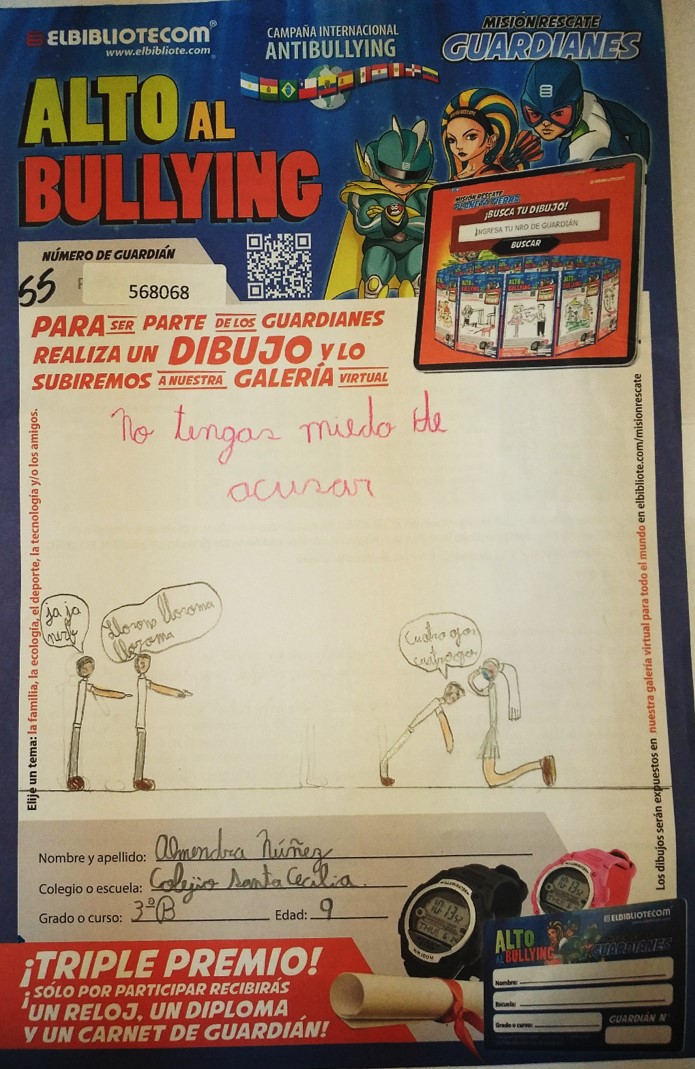 ELBIBLIOTECOM®
www.elbibliote.com
CAMPAÑA INTERNACIONAL
ANTIBULLYING
MISIÓN RESCATE
GUARDIANES
ALTO AL
BULLYING
MISIÓN RESCATE
PLANETA TIERRA
¡BUSCA TU DIBUJO!
INGRESA TU NRO DE GUARDIÁN
BUSCAR
NÚMERO DE GUARDIÁN
55
568068
PARA SER PARTE DE LOS GUARDIANES
REALIZA UN DIBUJO Y LO
SUBIREMOS A NUESTRA GALERÍA VIRTUAL
No tengas miedo de
acusar
Ja ja
Llorona llorona
Cuatro ojos
cuatro ojos
Elije un tema: la familia, la ecología, el deporte, la tecnología y/o los amigos.
Los dibujos serán expuestos en nuestra galería virtual para todo el mundo en elbibliote.com/misionrescate
Nombre y apellido: Almendra Núñez
Colegio o escuela: Colejio Santa Cecilia
Grado o curso: 3ºB Edad: 9
¡TRIPLE PREMIO!
¡SÓLO POR PARTICIPAR RECIBIRÁS
UN RELOJ, UN DIPLOMA
Y UN CARNET DE GUARDIÁN!
ELBIBLIOTECOM
ALTO
AL BULLYING
GUARDIANES
Nombre:
Escuela:
Grado o curso:
GUARDIÁN Nº